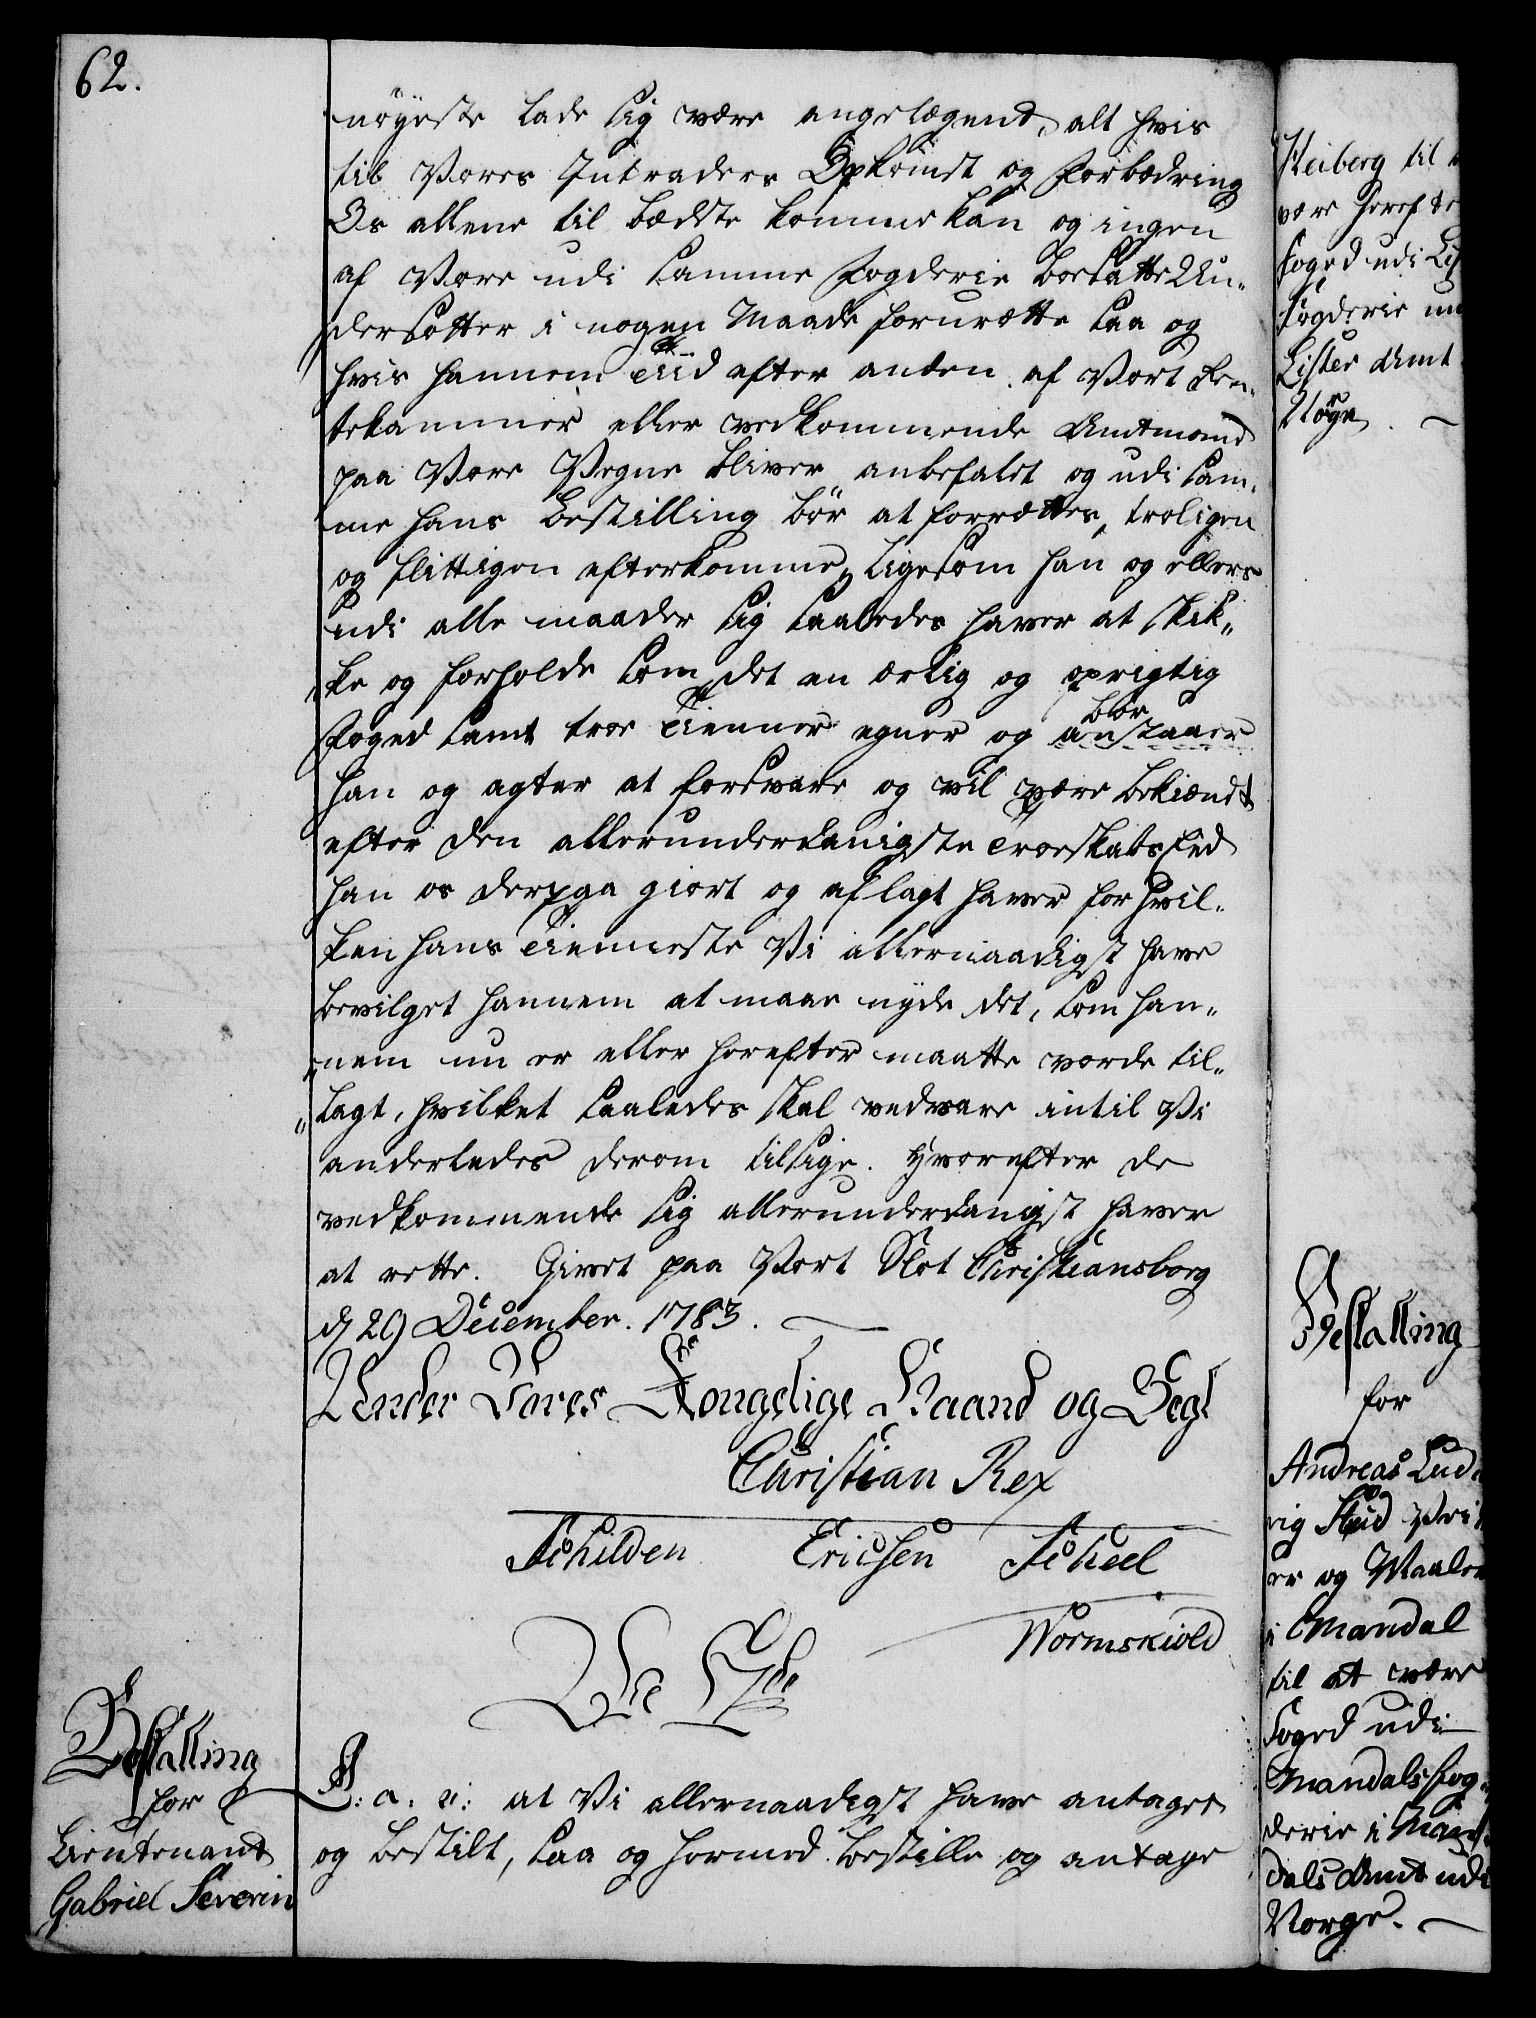 62.
nöyeste lade sig være angelægend, alt hvis
til Vores Intraders Opkomst og Forbædring
Os allene til bædste komme kan og ingen
af Vore udi samme Fogderie boesatte Un-
dersotter i nogen Maade forurætte saa og
hvis hannem Tiid efter anden af Vort Ren-
tekammer eller vedkommende Amtmand
paa Vore Vegne bliver anbefalet og udi sam-
me hans Bestilling bör at forrættes, troligen
og flittigen efterkomme, ligesom han og ellers
udi alle maader sig saaledes haver at skik-
ke og forholde som det en ærlig og oprigtig
bör
Foged samt troe Tienner egner og anstaaer
han og agter at forsvare og vil være bekiendt
efter den allerunderdanigste Troeskabs Eed
han os derpaa giort og aflagt haver for hvil-
ken hans Tienneste Vi allernaadigst have
bevilget hannem at maae nyde det, som han-
nem nu er eller herefter maatte vorde til-
lagt, hvilket saaledes skal vedvare intil Vi
anderledes derom tilsige. Hvorefter de
vedkommende sig allerunderdanigst haver
at rette. Givet paa Vort Slot Christiansborg
d 29 December. 1783.
Under Vores Kongelige Haand og Segl
Christian Rex
Schilden Ericksen Scheel
Wormskiold
Bestalling
for
Lieutenant
Gabriel Severin
V: a. v: at Vi allernaadigst have antaget
og bestilt, saa og hermed bestille og antage
Heiberg til
være herefter
Foged udi Lis
Fogderie un
Lister Amt
Norge.
Bestalling
for
Andreas Lud-
vig Stud
er og Maaler
i Mandal
til at være
Foged udi
Mandals Fog-
derie i Man-
dals Amt udi
Norge.